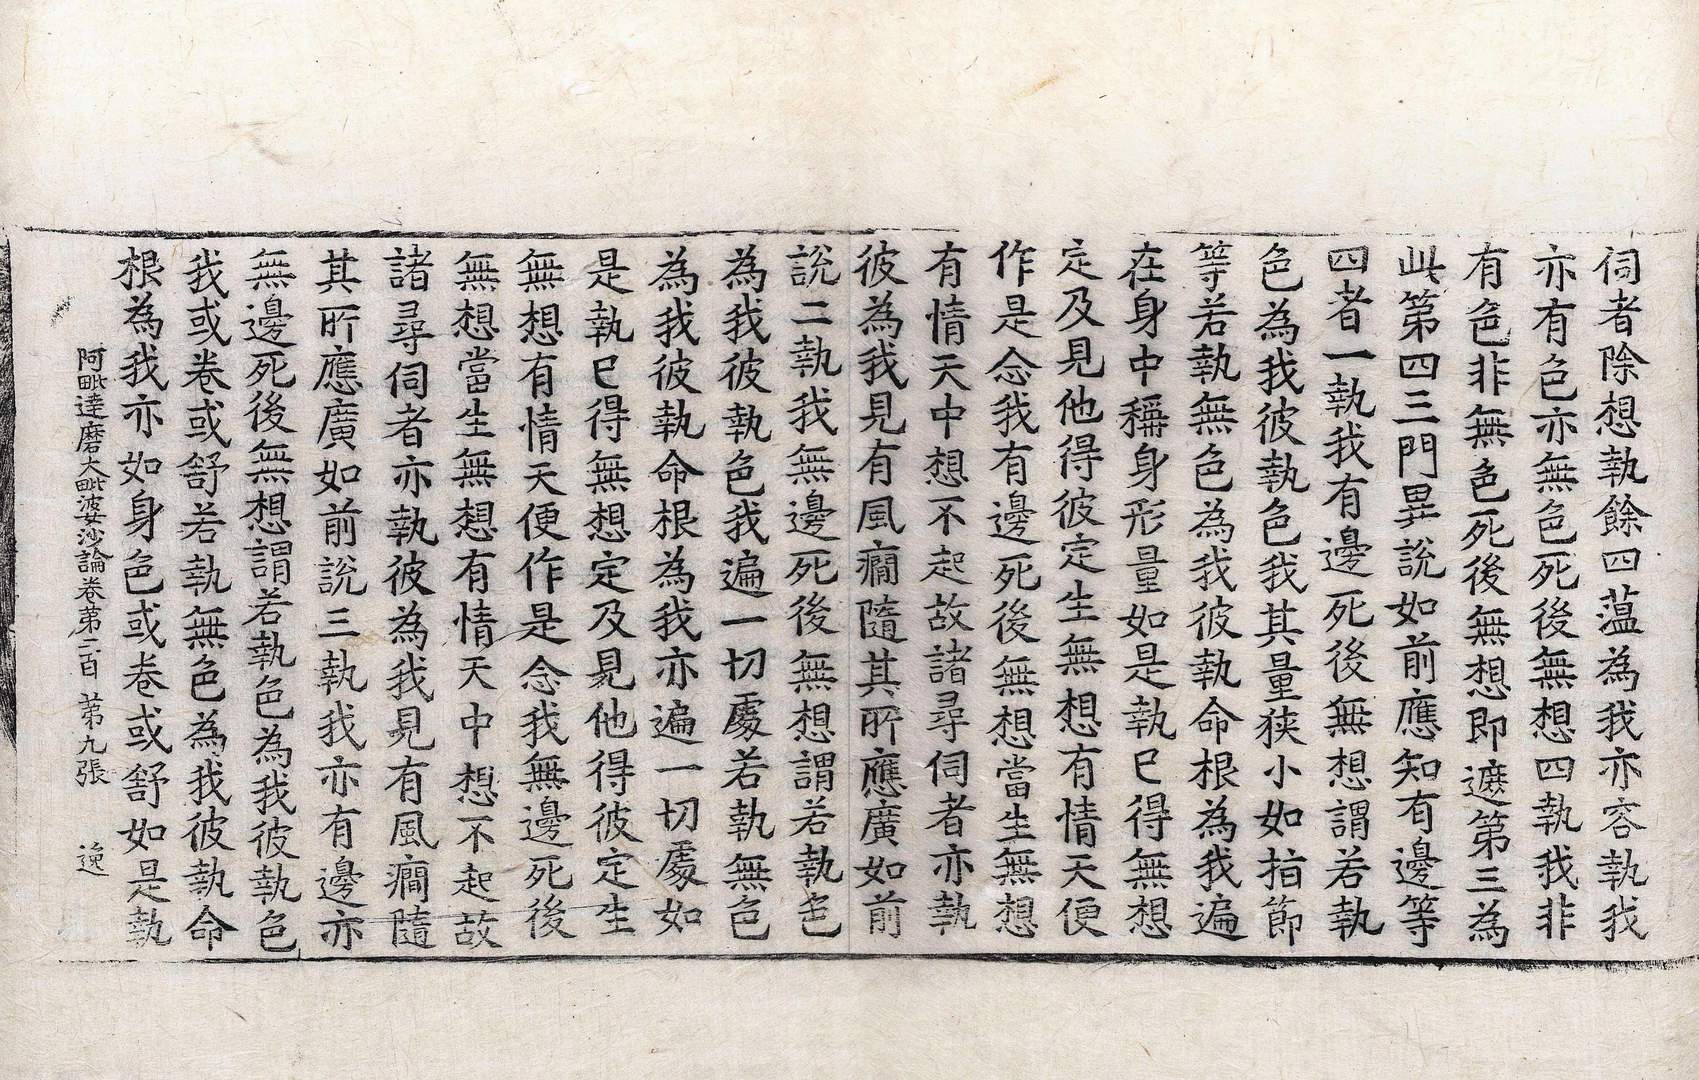 伺者除想執餘四薀為我亦容執我
亦有色亦無色死後無想四執我非
有色非無色死後無想即遮第三為
此第四三門異說如前應知有邊等
四者一執我有邊死後無想謂若執
色為我彼執色我其量狹小如指節
等若執無色為我彼執命根為我遍
在身中稱身形量如是執已得無想
定及見他得彼定生無想有情天便
作是念我有邊死後無想當生無想
有情天中想不起故諸尋伺者亦執
彼為我見有風癇隨其所應廣如前
說二執我無邊死後無想謂若執色
為我彼執色我遍一切處若執無色
為我彼執命根為我亦遍一切處如
是執已得無想定及見他得彼定生
無想有情天便作是念我無邊死後
無想當生無想有情天中想不起故
諸尋伺者亦執彼為我見有風癇隨
其所應廣如前說三執我亦有邊亦
無邊死後無想謂若執色為我彼執色
我或卷或舒若執無色為我彼執命
根為我亦如身色或卷或舒如是執
阿毗達磨大毗婆沙論卷第二百 第九張 逸